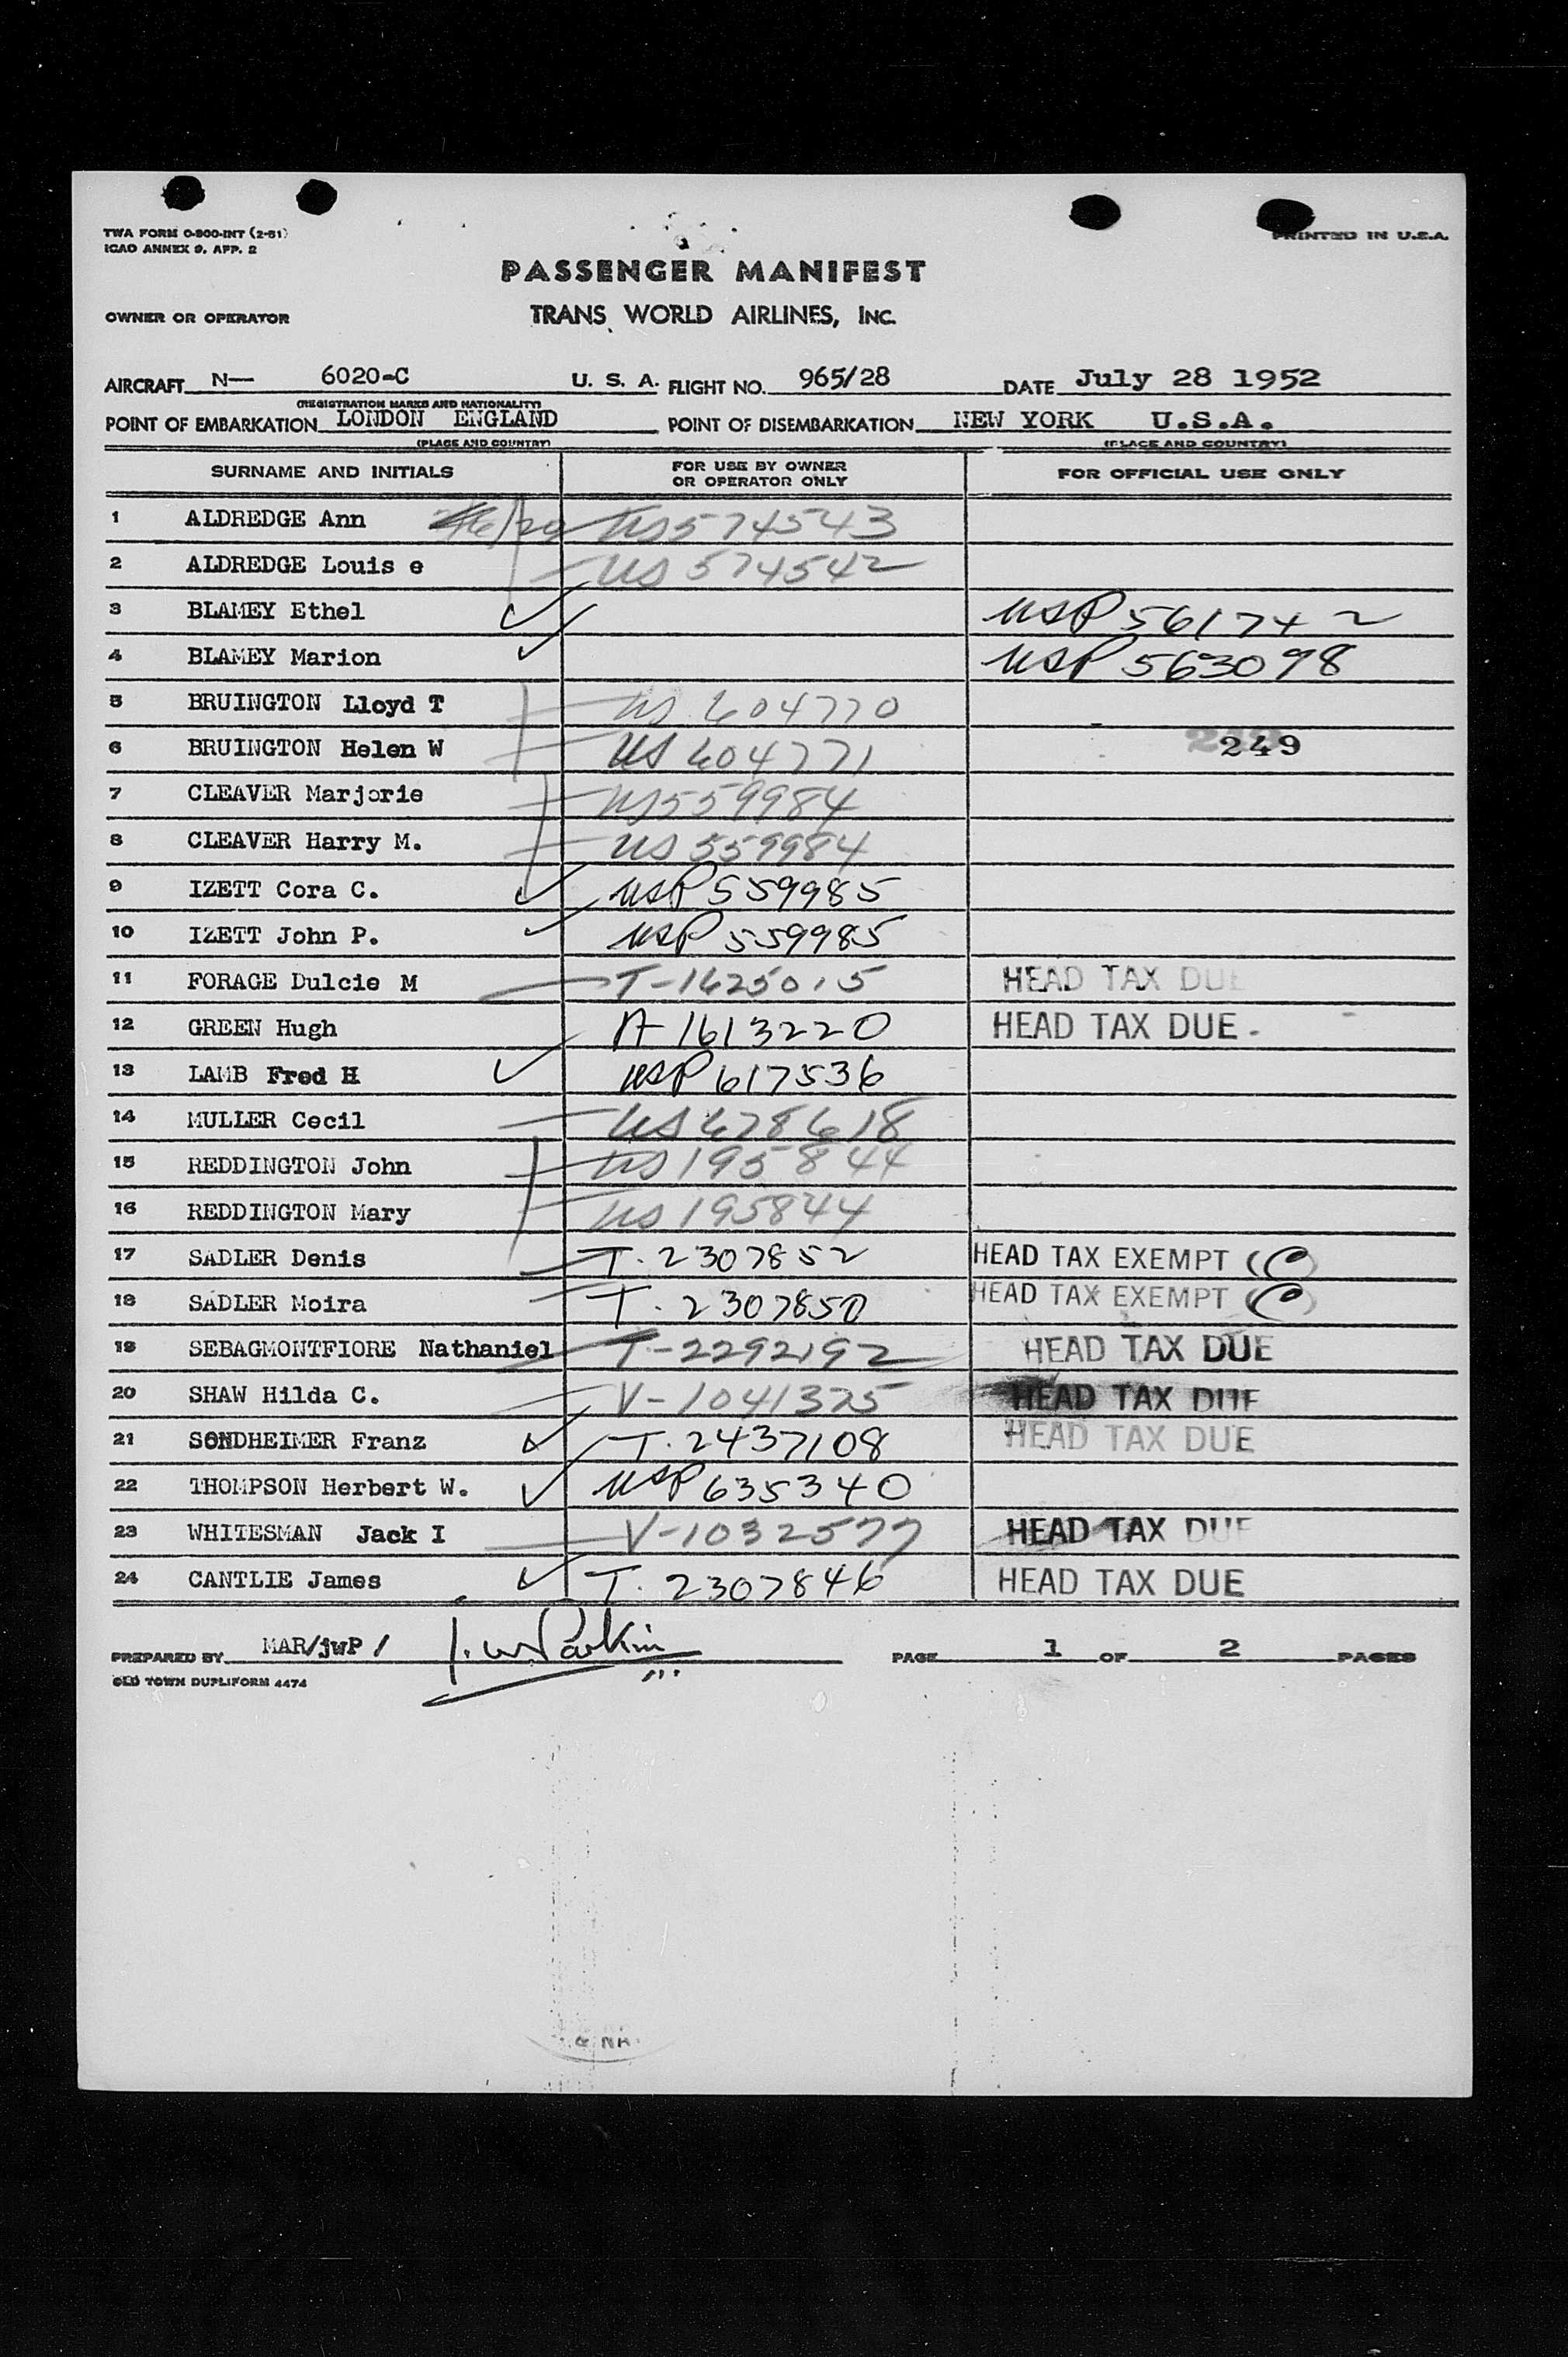 TWA FORM O-800-INT (2-51)
ICAO ANNEX 9, APP. 2
PRINTED IN U.S.A.
PASSENGER MANIFEST
OWNER OR OPERATOR TRANS WORLD AIRLINES, INC.
AIRCRAFT N— 6020-C U. S. A. FLIGHT NO. 965/28 DATE July 28 1952
(REGISTRATION MARKS AND NATIONALITY)
POINT OF EMBARKATION LONDON ENGLAND POINT OF DISEMBARKATION NEW YORK U.S.A.
(PLACE AND COUNTRY) (PLACE AND COUNTRY)
SURNAME AND INITIALS FOR USE BY OWNER OR OPERATOR ONLY FOR OFFICIAL USE ONLY
1 ALDREDGE Ann US 574543
2 ALDREDGE Louis e US 574542
3 BLAMEY Ethel USP 561742
4 BLAMEY Marion USP 563098
5 BRUINGTON Lloyd T US 604770
6 BRUINGTON Helen W US 604771 249
7 CLEAVER Marjorie US 559984
8 CLEAVER Harry M. US 559984
9 IZETT Cora C. USP 559985
10 IZETT John P. USP 559985
11 FORAGE Dulcie M T-1625015 HEAD TAX DUE
12 GREEN Hugh A-1613220 HEAD TAX DUE -
13 LAMB Fred H USP 617536
14 MULLER Cecil US 678618
15 REDDINGTON John US 195844
16 REDDINGTON Mary US 195844
17 SADLER Denis T. 2307852 HEAD TAX EXEMPT
18 SADLER Moira T. 2307850 HEAD TAX EXEMPT
19 SEBAGMONTFIORE Nathaniel T-2292192 HEAD TAX DUE
20 SHAW Hilda C. V-1041325 HEAD TAX DUE
21 SONDHEIMER Franz T. 2437108 HEAD TAX DUE
22 THOMPSON Herbert W. USP 635340
23 WHITESMAN Jack I V-1032577 HEAD TAX DUE
24 CANTLIE James T. 2307846 HEAD TAX DUE
PREPARED BY MAR/jwP / J. W. Parkin PAGE 1 OF 2 PAGES
OLD TOWN DUPLIFORM 4474